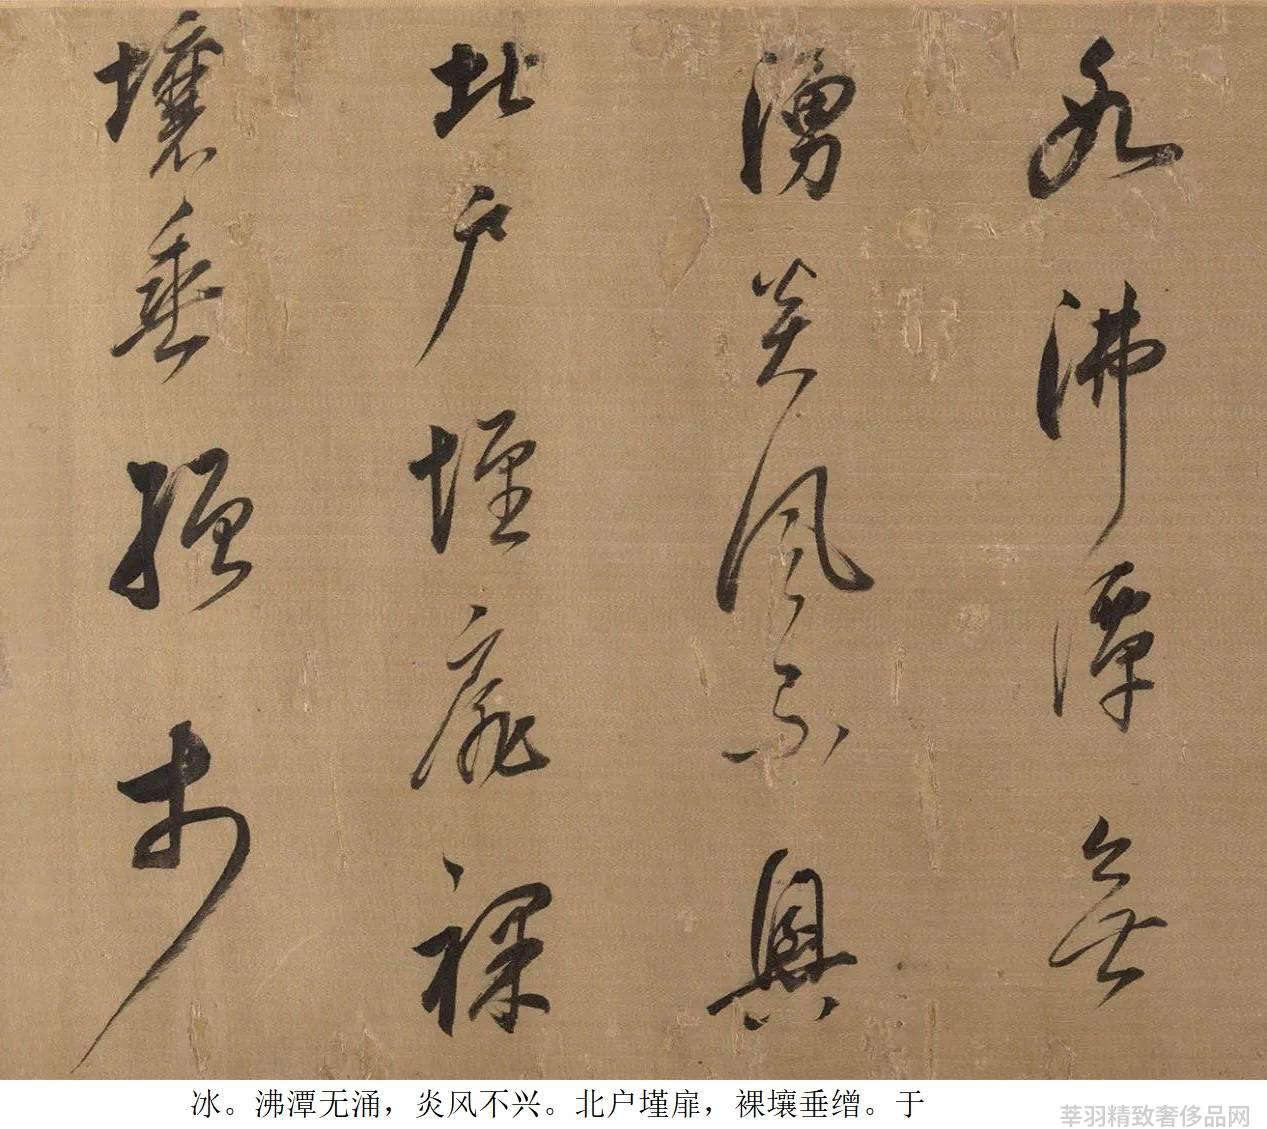 冰沸潭無
湧炎風不興
北戶墐扉裸
壤垂繒於
冰。沸潭无涌，炎风不兴。北户墐扉，裸壤垂缯。于
莘羽精致奢侈品网